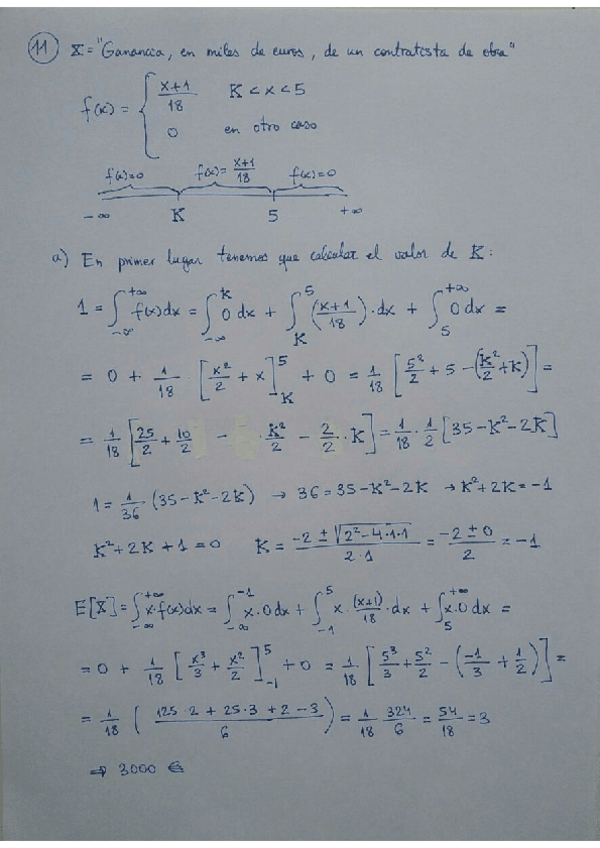 11 X = "Ganancia, en miles de euros, de un contratista de obra"
f(x) = { (x+1)/18   K < x < 5
0   en otro caso
f(x)=0   f(x)= (x+1)/18   f(x)=0
-∞   K   5   +∞
a) En primer lugar tenemos que calcular el valor de K:
1 = ∫_{-∞}^{+∞} f(x)dx = ∫_{-∞}^{K} 0 dx + ∫_{K}^{5} ((x+1)/18)·dx + ∫_{5}^{+∞} 0 dx =
= 0 + 1/18 [x²/2 + x]_{K}^{5} + 0 = 1/18 [5²/2 + 5 - (K²/2 + K)] =
= 1/18 [25/2 + 10/2 - · K²/2 - 2/2 · K] = 1/18 · 1/2 [35 - K² - 2K]
1 = 1/36 · (35 - K² - 2K) → 36 = 35 - K² - 2K → K² + 2K = -1
K² + 2K + 1 = 0   K = (-2 ± √(2² - 4·1·1))/(2·1) = (-2 ± 0)/2 = -1
E[X] = ∫_{-∞}^{+∞} x·f(x)dx = ∫_{-∞}^{-1} x·0dx + ∫_{-1}^{5} x·(x+1)/18·dx + ∫_{5}^{+∞} x·0dx =
= 0 + 1/18 [x³/3 + x²/2]_{-1}^{5} + 0 = 1/18 [5³/3 + 5²/2 - (-1/3 + 1/2)] =
= 1/18 ((125·2 + 25·3 + 2 - 3)/6) = 1/18 · 324/6 = 54/18 = 3
⇒ 3000 €